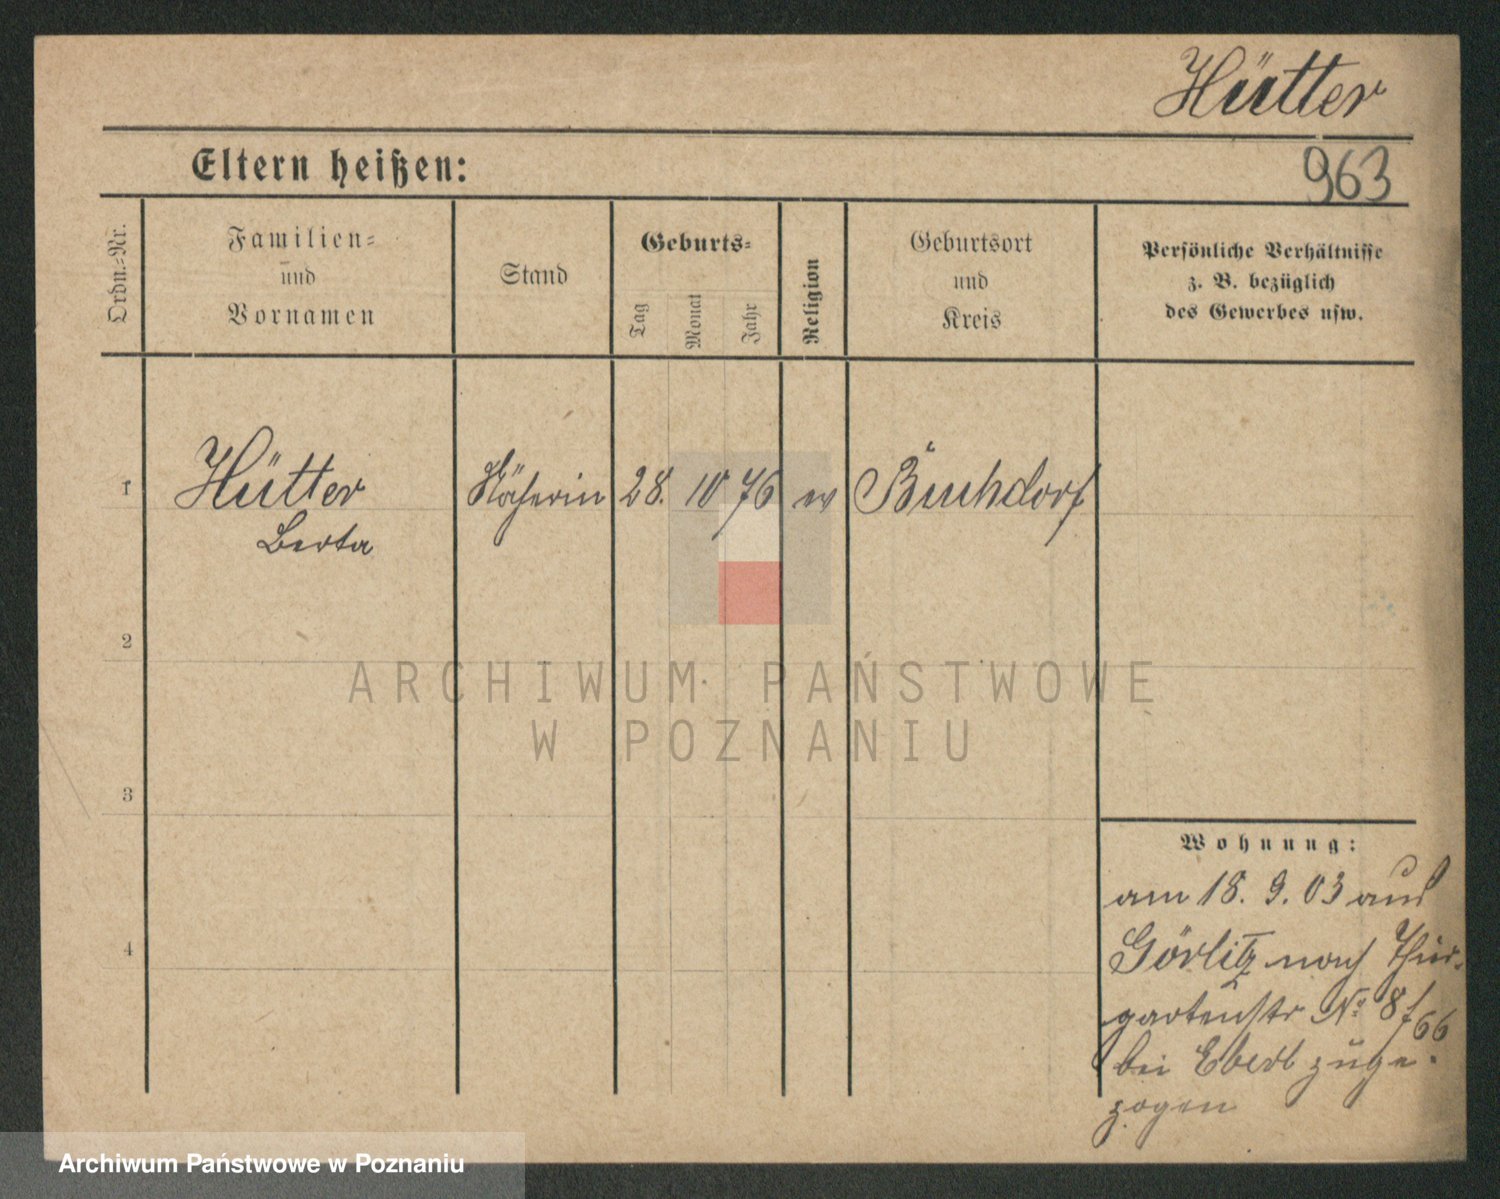 Hütter
Eltern heißen:
963
Ordn.-Nr.
Familien-
und
Vornamen
Stand
Geburts-
Tag
Monat
Jahr
Religion
Geburtsort
und
Kreis
Persönliche Verhältnisse
z. B. bezüglich
des Gewerbes usw.
1
Hütter
Berta
Näherin
28. 10 76
ev
Buchdorf
2
3
4
Wohnung:
am 18. 9. 03 aus
Görlitz nach Thier-
gartenstr No 8/66
bei Eberl zuge-
zogen
ARCHIWUM PAŃSTWOWE
W POZNANIU
Archiwum Państwowe w Poznaniu